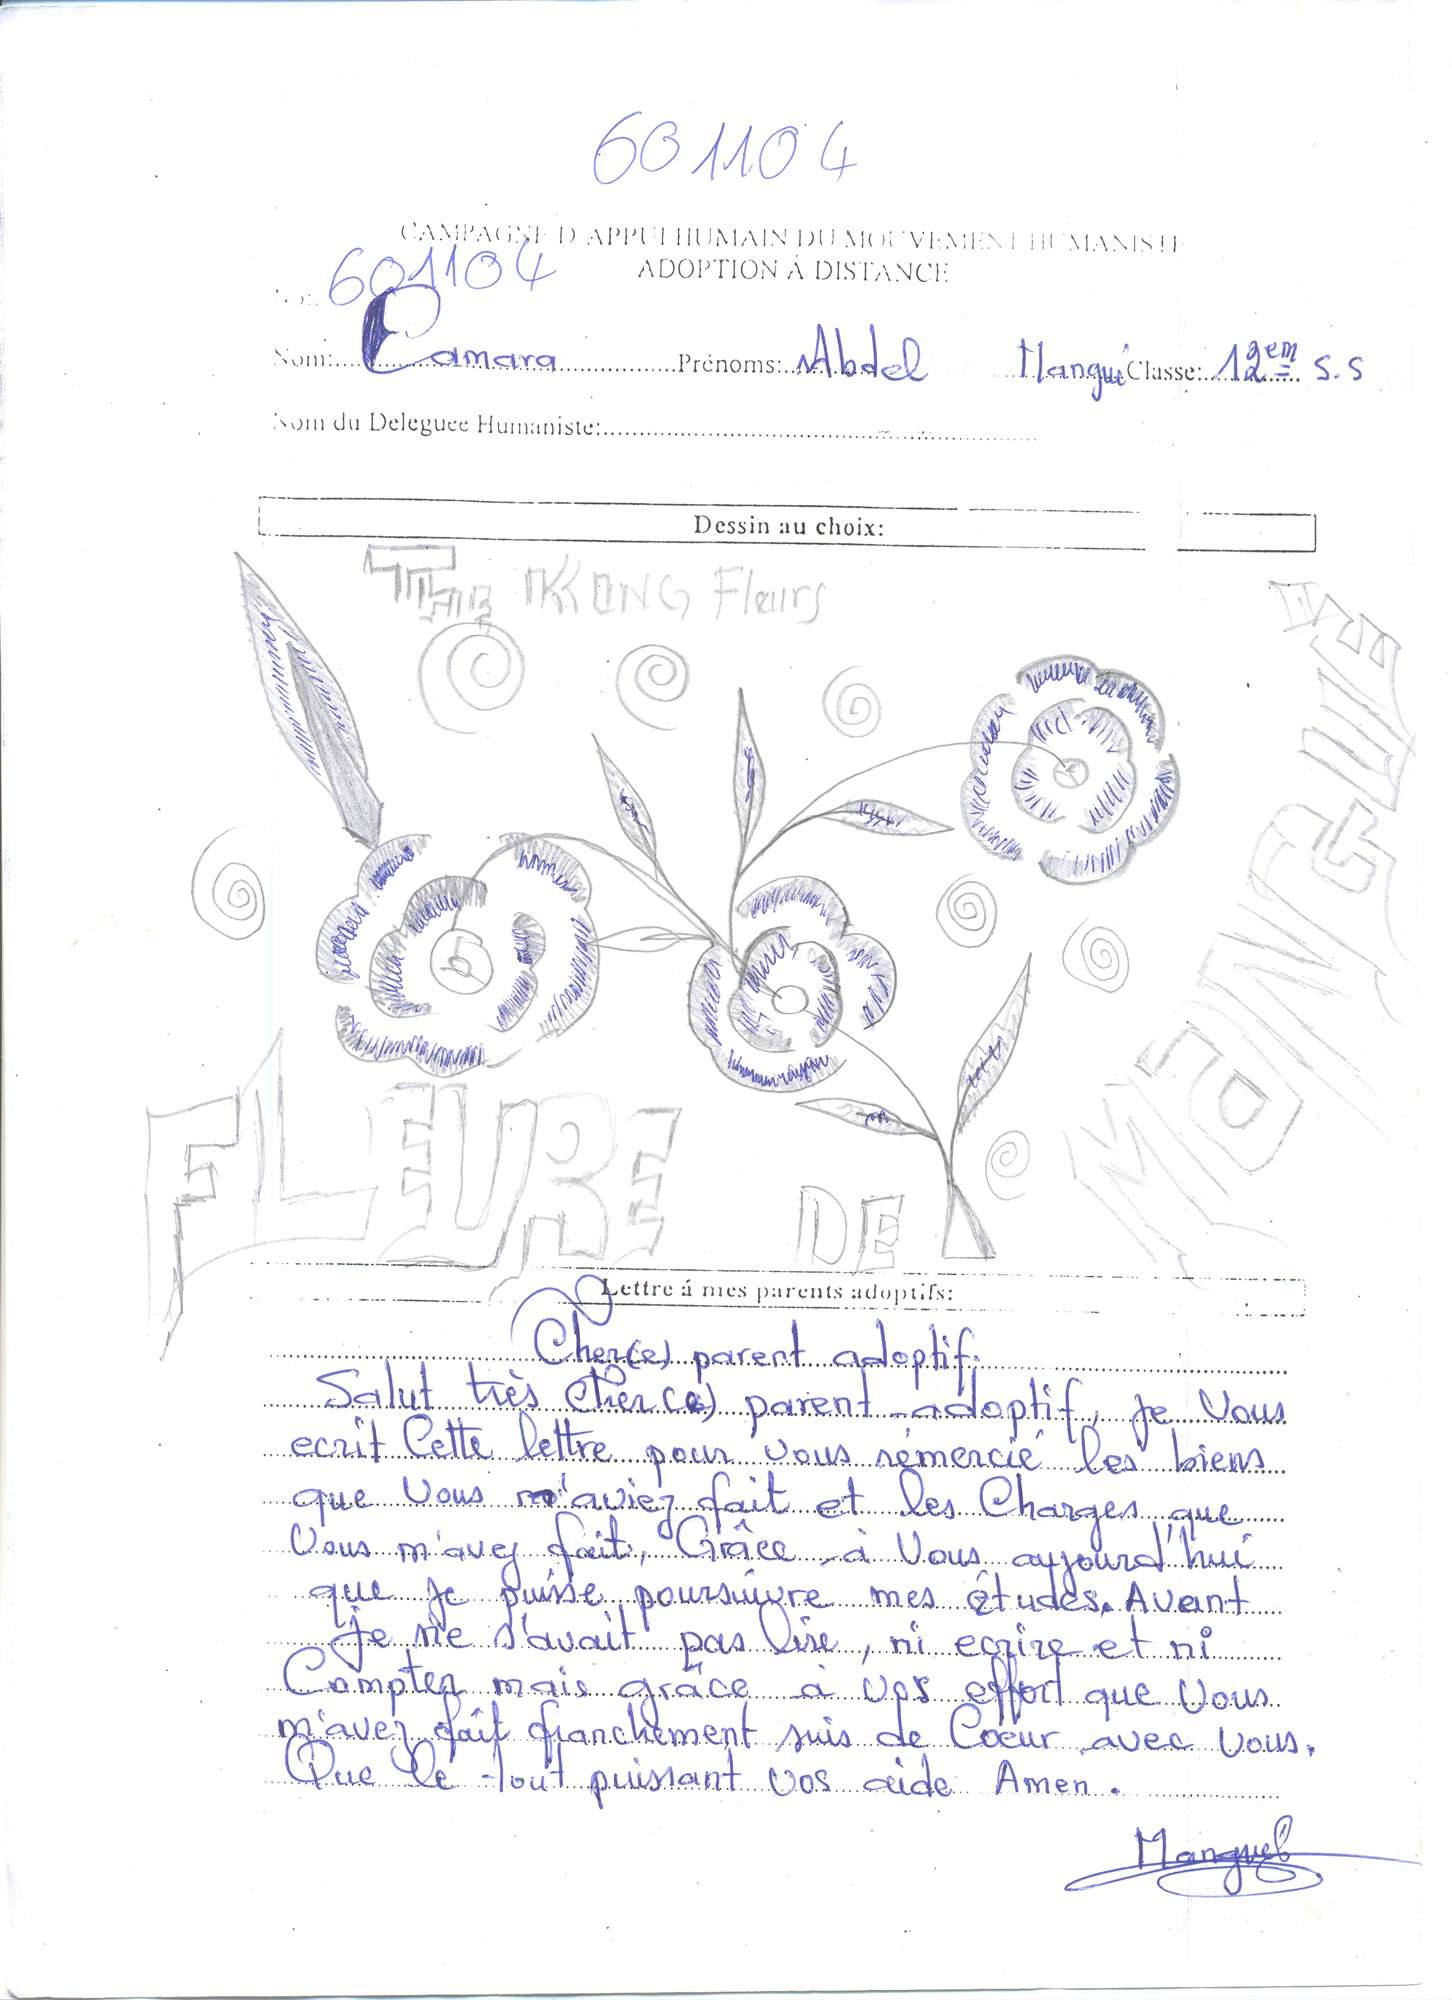 601104
CAMPAGNE D'APPUI HUMAIN DU MOUVEMENT HUMANISTE
ADOPTION Á DISTANCE
No: 601104
Nom: Camara Prénoms: Abdel Mangué Classe: 12em S.S
Nom du Deleguee Humaniste:
Dessin au choix:
THE KONG Fleurs
FLEURE DE MANGUE
Lettre á mes parents adoptifs:
Cher(e) parent adoptif.
Salut très cher(e) parent adoptif, je vous
ecrit Cette lettre pour vous rémercié les biens
que vous m'aviez fait et les Charges que
vous m'avez fait, Grâce à vous aujourd'hui
que je puisse poursuivre mes études. Avant
Je ne s'avait pas lire, ni ecrire et ni
Compter mais grâce à vos effort que vous
m'avez fait franchement suis de Coeur avec vous.
Que le tout puissant vos aide Amen.